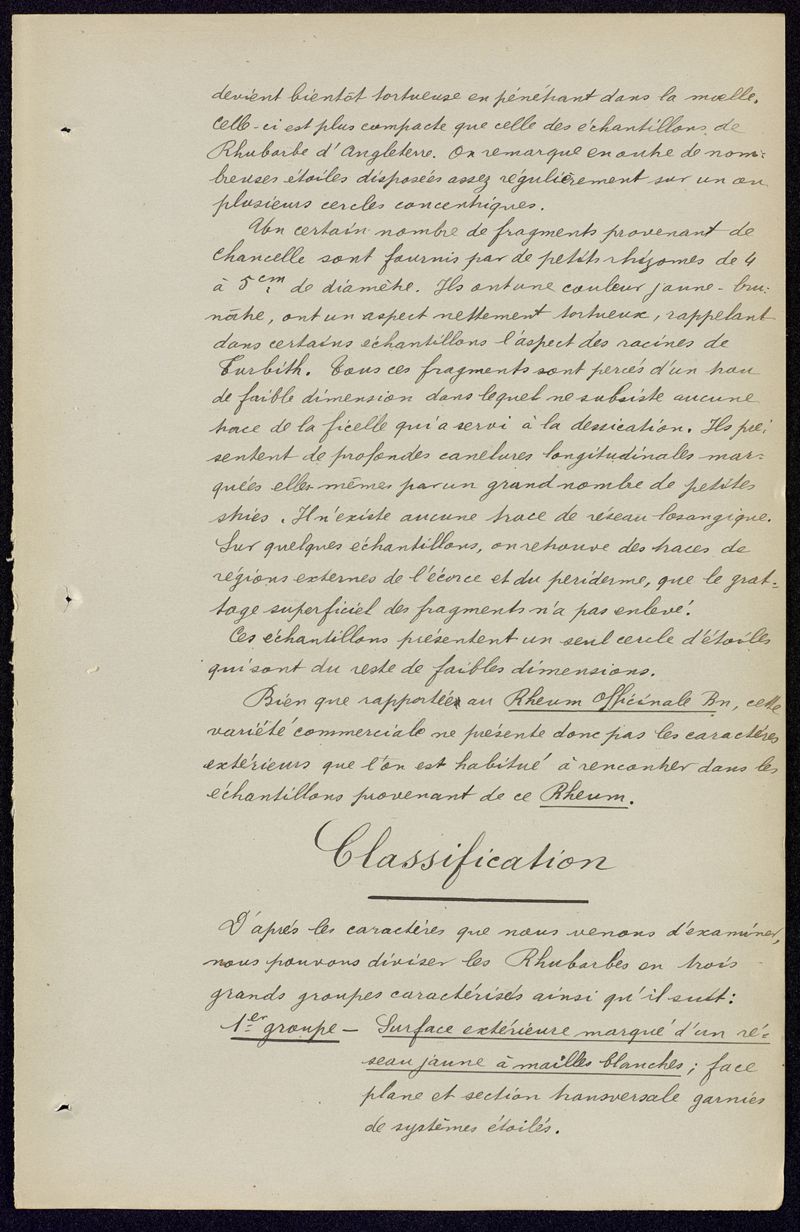 devient bientôt tortueuse en pénétrant dans la moelle.
Celle-ci est plus compacte que celle des échantillons de
Rhubarbe d'Angleterre. On remarque en outre de nom-
breuses étoiles disposées assez régulièrement sur un ou
plusieurs cercles concentriques.
Un certain nombre de fragments provenant de
Chancelle sont fournis par de petits rhizomes de 4
à 5 cm de diamètre. Ils ont une couleur jaune-bru-
nâtre, ont un aspect nettement tortueux, rappelant
dans certains échantillons l'aspect des racines de
Turbith. Tous ces fragments sont percés d'un trou
de faible dimension dans lequel ne subsiste aucune
trace de la ficelle qui a servi à la dessication. Ils pré-
sentent de profondes canelures longitudinales mar-
quées elles-mêmes par un grand nombre de petites
stries. Il n'existe aucune trace de réseau losangique.
Sur quelques échantillons, on retrouve des traces de
régions externes de l'écorce et du periderme, que le grat-
tage superficiel des fragments n'a pas enlevé.
Ces échantillons présentent un seul cercle d'étoiles
qui sont du reste de faibles dimensions.
Bien que rapportée au Rheum officinale Bn, cette
variété commerciale ne présente donc pas les caractères
extérieurs que l'on est habitué à rencontrer dans les
échantillons provenant de ce Rheum.
Classification
D'après les caractères que nous venons d'examiner,
nous pouvons diviser les Rhubarbes en trois
grands groupes caractérisés ainsi qu'il suit:
1er groupe - Surface extérieure marqué d'un ré-
seau jaune à mailles blanches; face
plane et section transversale garnies
de systèmes étoilés.